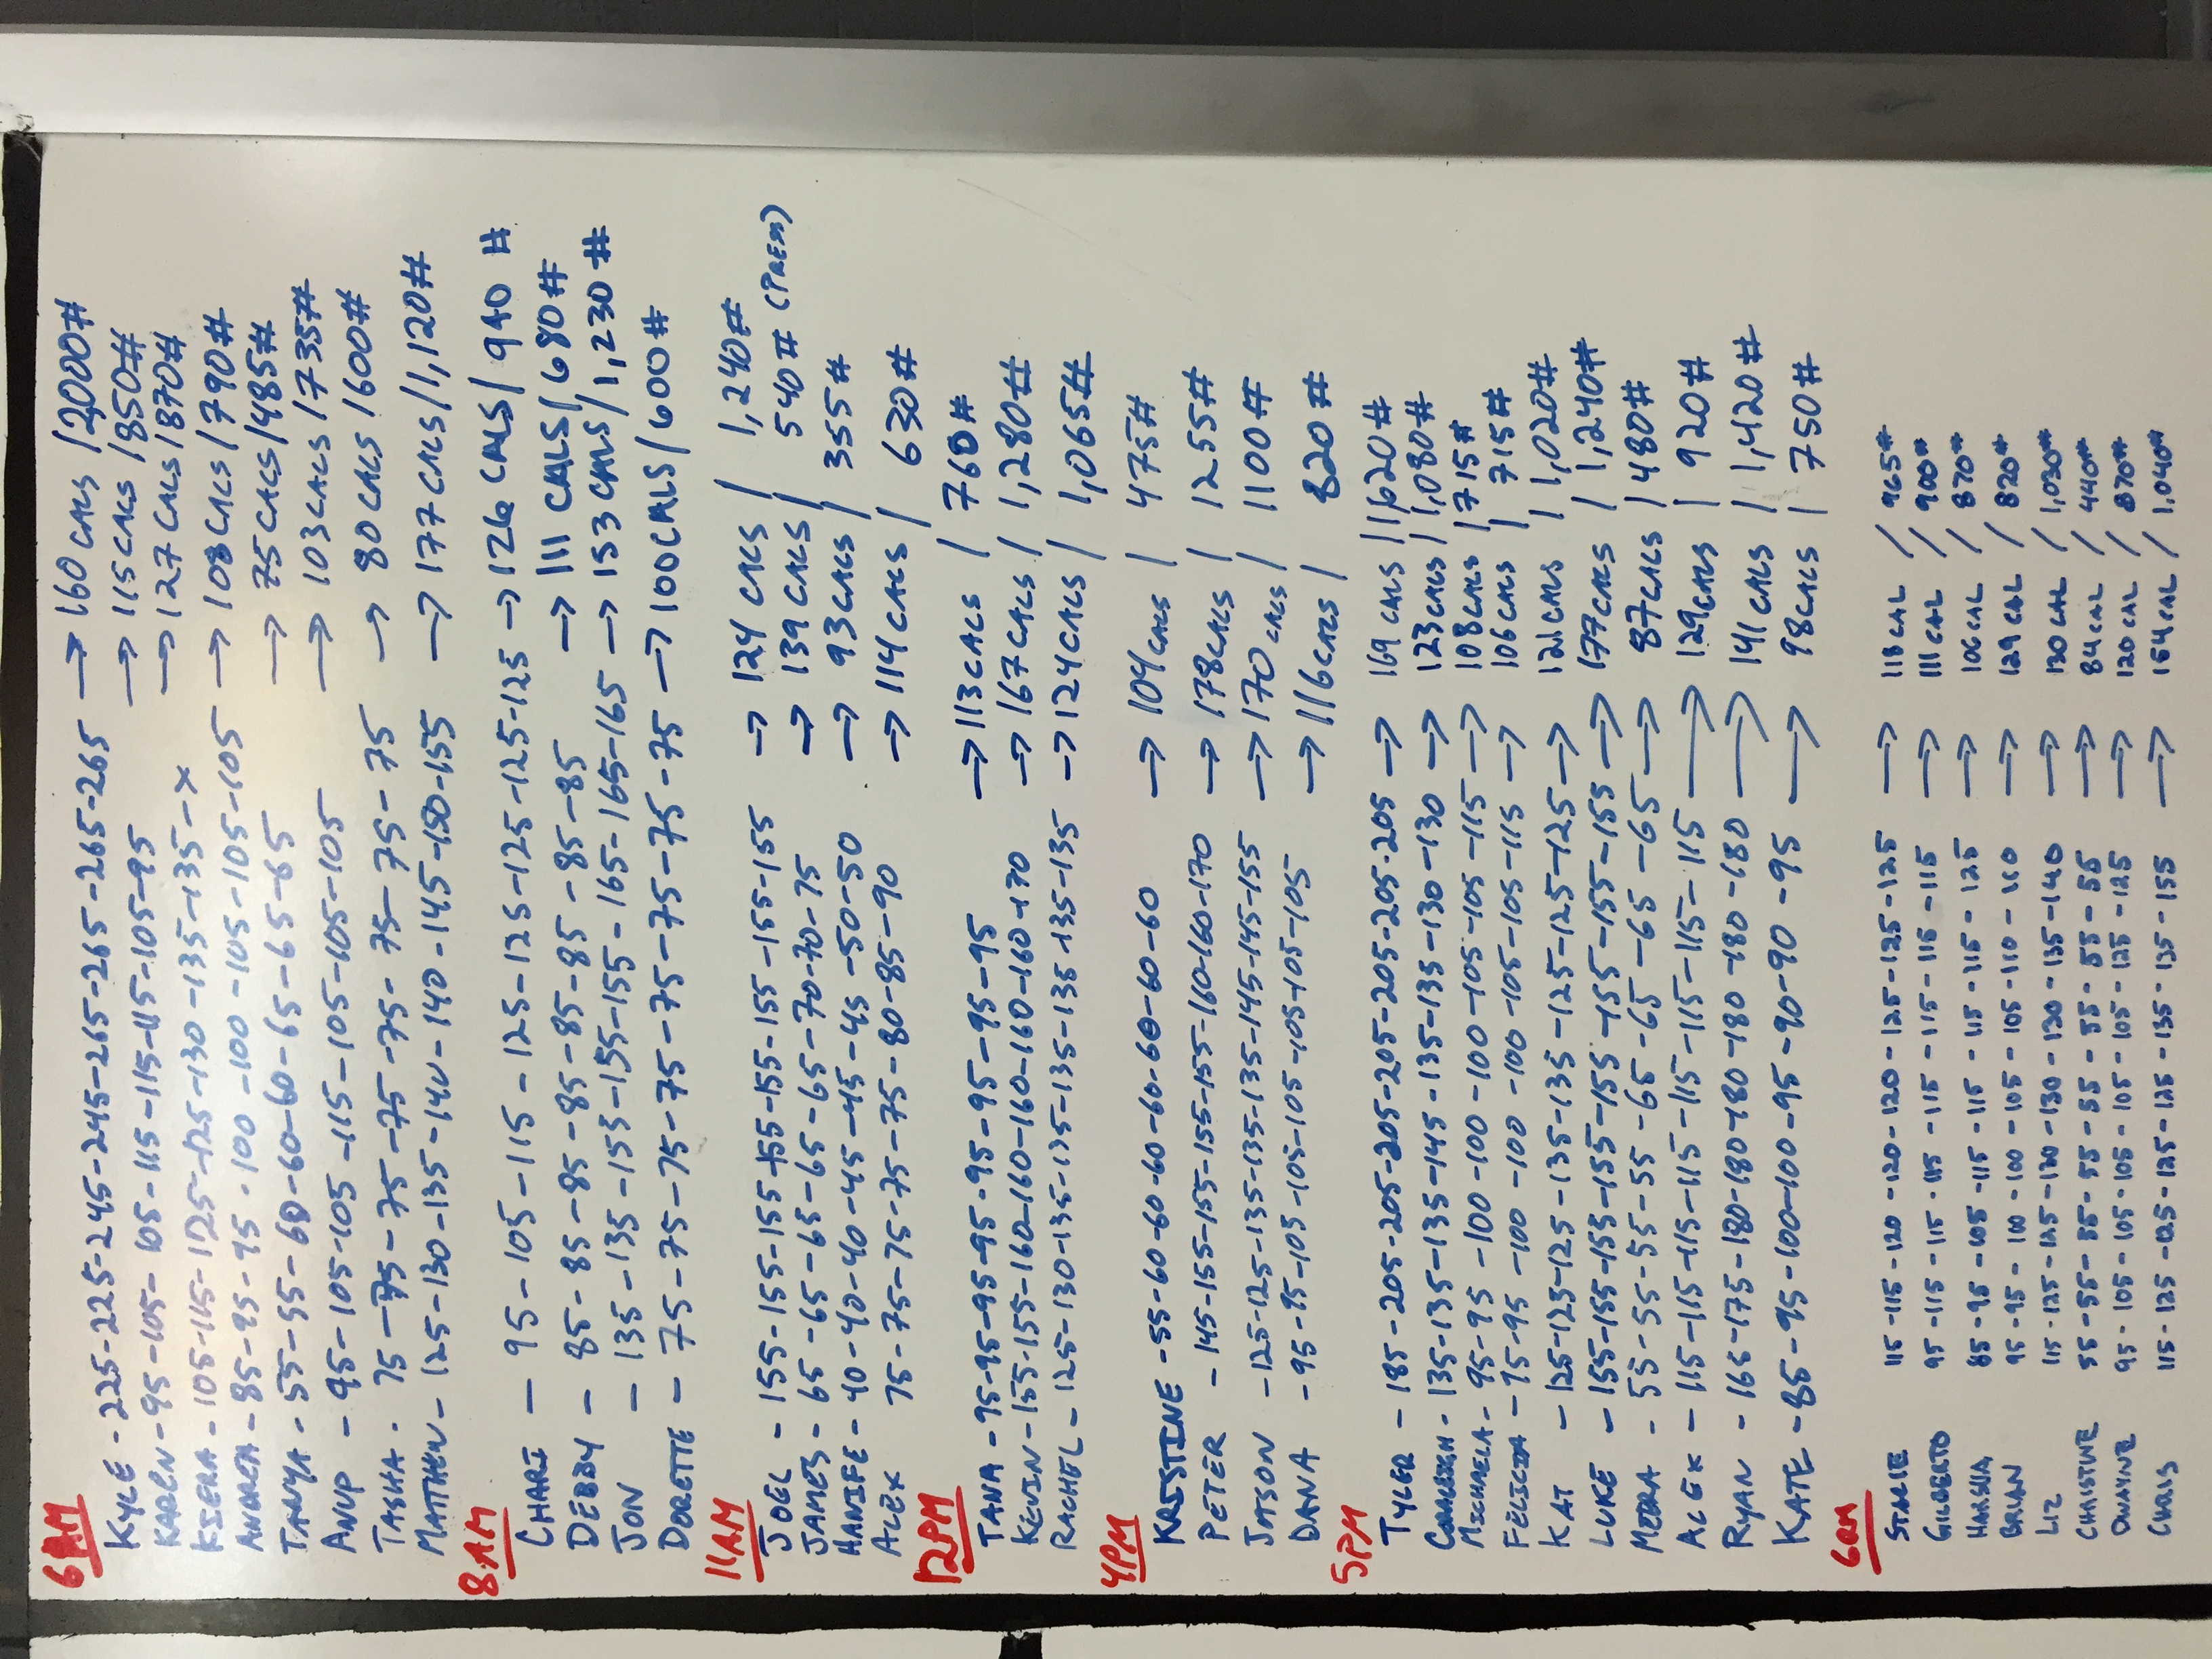 6AM
KYLE - 225-225-245-245-265-265-265-265 → 160 CALS / 2000#
KAREN - 95-105-105-115-115-115-105-95 → 115 CALS / 850#
KIERA - 105-115-125-125-130-135-135-X → 127 CALS / 870#
ANDREA - 85-95-95-100-100-105-105-105 → 103 CALS / 790#
TANYA - 55-55-60-60-60-65-65-65 → 75 CALS / 485#
ANUP - 95-105-105-105-115-105-105-105 → 103 CALS / 735#
TASHA - 75-75-75-75-75-75-75-75 → 80 CALS / 600#
MATTHEW - 125-130-135-140-140-145-150-155 → 177 CALS / 1,120#
8AM
CHARI - 95-105-115-125-125-125-125-125 → 126 CALS / 940#
DEBBY - 85-85-85-85-85-85-85-85 → 111 CALS / 680#
JON - 135-135-155-155-155-165-165-165 → 153 CALS / 1,230#
DORETTE - 75-75-75-75-75-75-75-75 → 100 CALS / 600#
11AM
JOEL - 155-155-155-155-155-155-155-155 → 124 CALS / 1,240#
JAMES - 65-65-65-65-65-70-70-75 → 139 CALS / 540# (PREM)
HANIFE - 40-40-40-45-45-45-50-50 → 93 CALS / 355#
ALEX 75-75-75-75-75-80-85-90 → 114 CALS / 630#
12PM
TANA - 95-95-95-95-95-95-95-95 → 113 CALS / 760#
KEVIN - 155-155-160-160-160-160-160-170 → 167 CALS / 1,280#
RACHEL - 125-130-135-135-135-135-135-135 → 124 CALS / 1,065#
4PM
KRISTINE - 55-60-60-60-60-60-60-60 → 104 CALS / 475#
PETER - 145-155-155-155-155-160-160-170 → 178 CALS / 1255#
JAYSON - 125-125-135-135-135-145-145-155 → 170 CALS / 1100#
DANA - 95-95-105-105-105-105-105-105 → 116 CALS / 820#
5PM
TYLER - 185-205-205-205-205-205-205-205 → 169 CALS / 1,620#
CARALEIGH - 135-135-135-145-135-135-130-130 → 123 CALS / 1,080#
MICHAELA - 95-95-100-100-100-105-105-115 → 108 CALS / 715#
FELICIA - 95-95-100-100-100-105-105-115 → 106 CALS / 715#
KAT - 125-125-125-135-135-125-125-125 → 121 CALS / 1,020#
LUKE - 155-155-155-155-155-155-155-155 → 177 CALS / 1,240#
MEERA - 55-55-55-55-65-65-65-65 → 87 CALS / 480#
ALEX - 115-115-115-115-115-115-115-115 → 129 CALS / 920#
RYAN - 165-175-180-180-180-180-180-180 → 141 CALS / 1,420#
KATE - 85-95-100-100-95-90-90-95 → 98 CALS / 750#
6PM
STACIE 115-115-120-120-120-125-125-125 → 118 CAL / 965#
GILBERTO 95-115-115-115-115-115-115-115 → 111 CAL / 900#
HARSHA 85-95-105-115-115-115-115-125 → 106 CAL / 870#
BRIAN 95-95-100-100-105-105-110-110 → 129 CAL / 820#
LIZ 115-125-125-130-130-130-135-140 → 130 CAL / 1,030#
CHRISTINE 55-55-55-55-55-55-55-55 → 84 CAL / 440#
DWAYNE 95-105-105-105-105-105-125-125 → 120 CAL / 870#
CHRIS 115-125-125-125-125-135-135-155 → 154 CAL / 1,040#